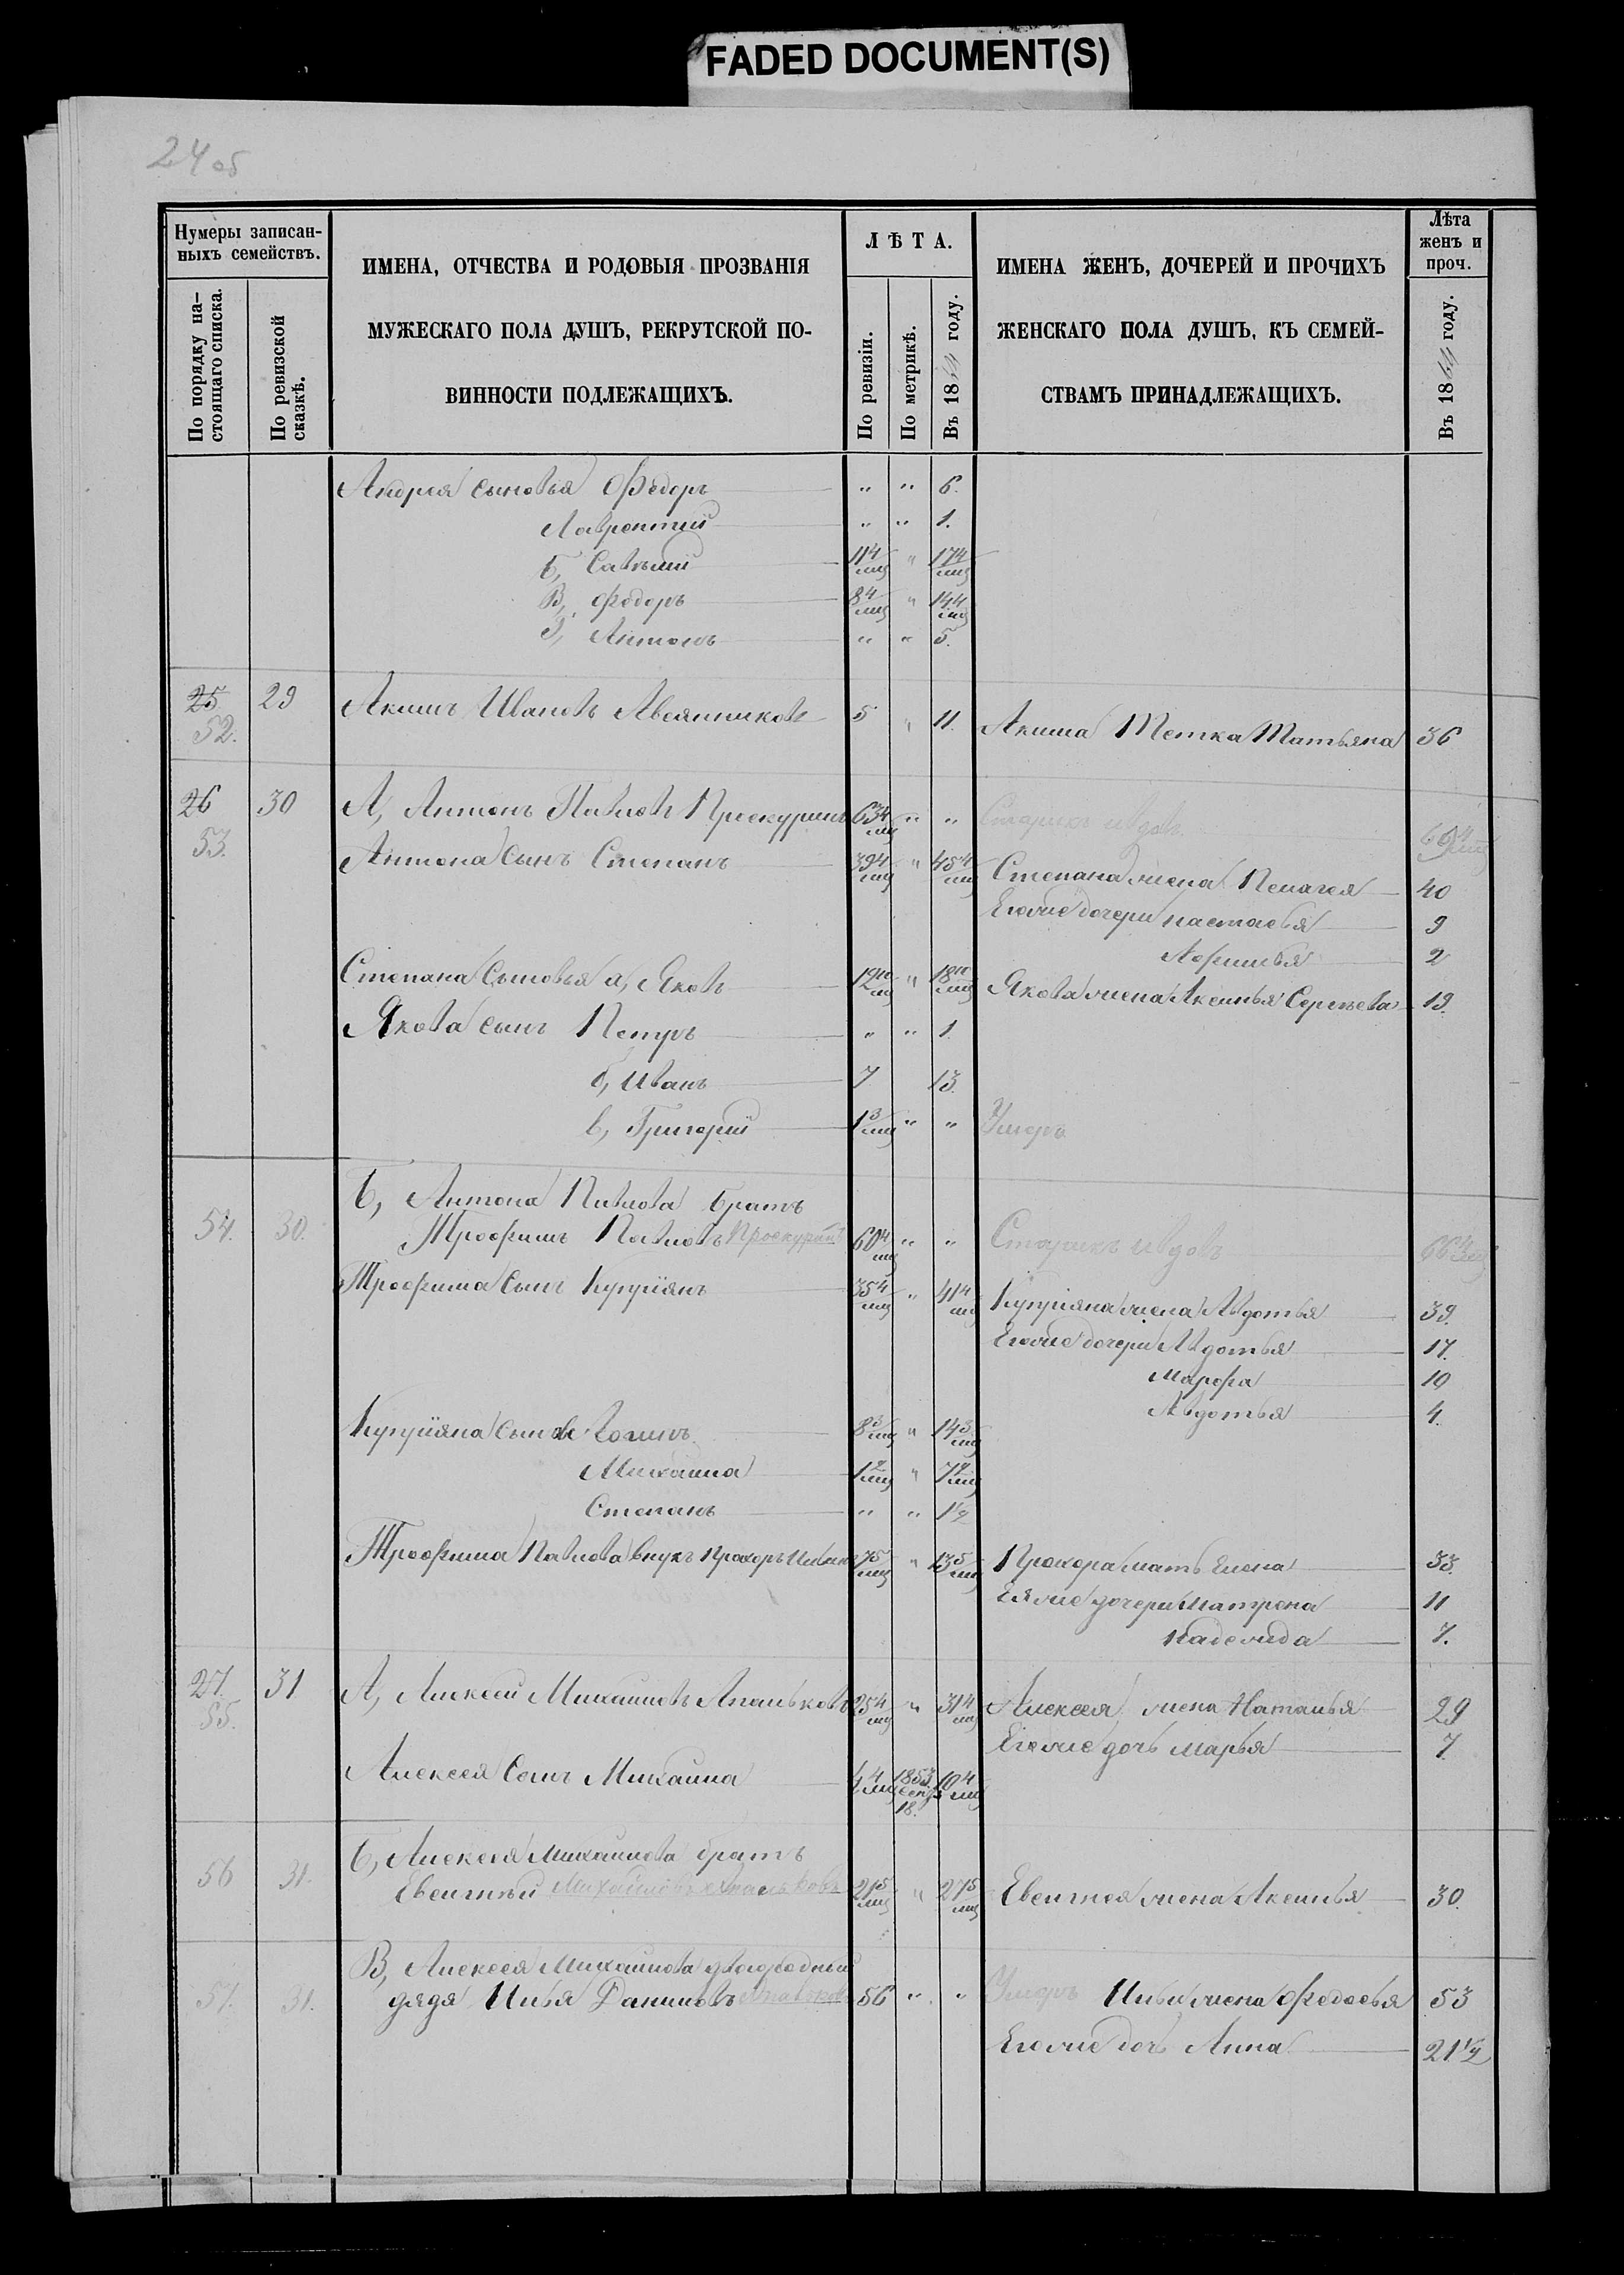 FADED DOCUMENT(S)
24 об
Нумеры записан-
ныхъ семействъ.
По порядку на-
стоящаго списка.
По ревизской
сказкѣ.
ИМЕНА, ОТЧЕСТВА И РОДОВЫЯ ПРОЗВАНІЯ
МУЖЕСКАГО ПОЛА ДУШЪ, РЕКРУТСКОЙ ПО-
ВИННОСТИ ПОДЛЕЖАЩИХЪ.
ЛѢТА.
По ревизіи.
По метрикѣ.
Въ 1864 году.
ИМЕНА ЖЕНЪ, ДОЧЕРЕЙ И ПРОЧИХЪ
ЖЕНСКАГО ПОЛА ДУШЪ, КЪ СЕМЕЙ-
СТВАМЪ ПРИНАДЛЕЖАЩИХЪ.
Лѣта
женъ и
проч.
Въ 1864 году.
Андрея сыновья Ѳедоръ " " 6.
Лаврентий " " 1.
Б, Савелий 11 4/мц " 17 4/мц
В, Федоръ 8 4/мц " 14 4/мц
Г, Антонъ " " 5.
25 29 Акимъ Ивановъ 5 " 11. Акима Тетка Татьяна 36
52.
26 30 А, Антонъ Павловъ Проскуринъ 63 4/мц " " Старикъ вдовъ 69 4/мц
53.
Антона Сынъ Степанъ 39 4/мц " 45 4/мц Степана жена Пелагея 40
Еговые дочери Настасья 9
Афимья 2
Степана Сыновья а, Яковъ 12 10/мц " 18 10/мц Якова жена Аксинья Сергеева 19.
Якова сынъ Петръ " " 1.
б, Иванъ 7 13.
в, Григорий 1 3/мц " " Умеръ
Б, Антона Павлова братъ
54. 30. Трофимъ Павловъ Проскуринъ 60 4/мц " " Старикъ вдовъ 66 4/мц
Трофима Сынъ Куприянъ 35 4/мц " 41 4/мц Куприяна жена Авдотья 39.
Еговые дочери Авдотья 17.
Марфа 10
Авдотья 4.
Куприяна Сынове 8 3/мц " 14 3/мц
Михаила 1 2/мц " 7 2/мц
Степанъ " " 1 1/2
Трофима Павлова внукъ Прохоръ 7 5/мц " 13 5/мц Прохора мать Елена 33.
Еявые дочери Матрена 11
Надежда 7.
27. 31 А, Алексей Михайловъ Апальковъ 25 4/мц " 31 4/мц Алексея жена Наталья 29
55.
Еговые дочь Марья 7
Алексея Сынъ Михаила 4 4/мц 1853. сент. 18. 10 4/мц
Б, Алексея Михайлова братъ
56 31. Евсигней Михайловъ Апальковъ 21 5/мц " 27 5/мц Евсигнея жена Аксинья 30.
В, Алексея Михайлова двоюродный
57. 31. дядя Илья Даниловъ Апальковъ 56 " " Умеръ Ильи жена Федосья 53
Еговые дочь Анна 21 1/2